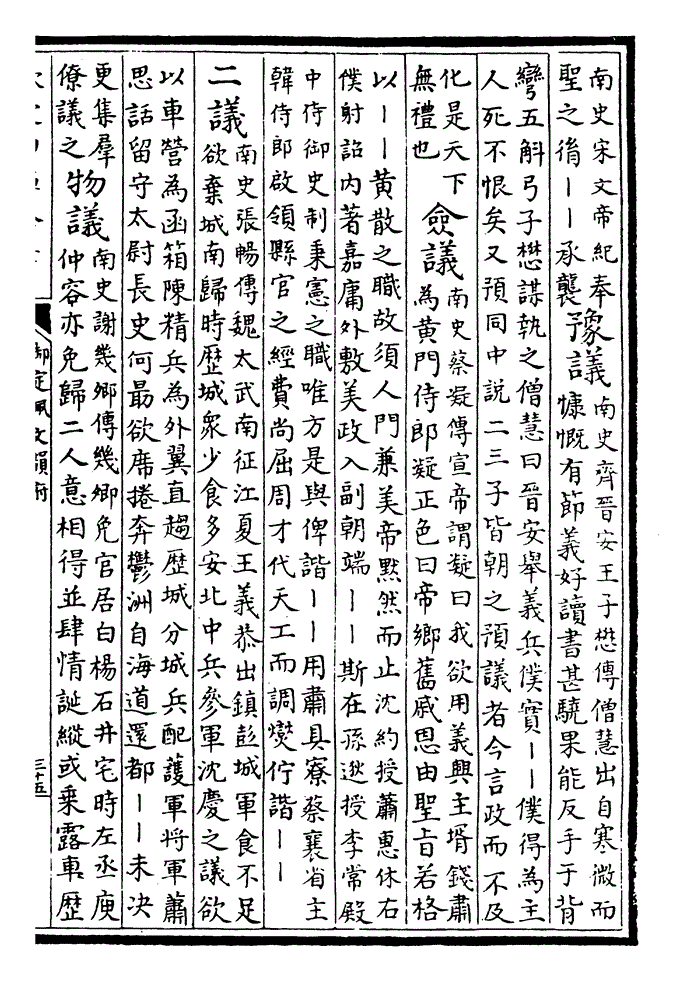 南史宋文帝紀奉
聖之㣧丨丨承襲
豫議
南史齊晉安王子懋傳僧慧出自寒微而
慷慨有節義好讀書甚驍果能反手于背
彎五斛弓子懋謀執之僧慧曰晉安舉義兵僕實丨丨僕得為主
人死不恨矣又預同中說二三子皆朝之預議者今言政而不及
化是天下
無禮也
僉議
南史蔡凝傳宣帝謂凝曰我欲用義興主壻錢肅
為黄門侍郎凝正色曰帝鄉舊戚恩由聖旨若格
以丨丨黄散之職故須人門兼美帝黙然而止沈約授蕭惠休右
僕射詔内著嘉庸外敷美政入副朝端丨丨斯在孫逖授李常殿
中侍御史制秉憲之職唯方是與俾諧丨丨用肅具寮蔡襄省主
韓侍郎啟領縣官之經費尚屈周才代天工而調燮佇諧丨丨
二議
南史張暢傳魏太武南征江夏王義恭出鎮彭城軍食不足
欲棄城南歸時歴城衆少食多安北中兵參軍沈慶之議欲
以車營為函箱陳精兵為外翼直趨歴城分城兵配護軍將軍蕭
思話留守太尉長史何朂欲席捲奔鬱洲自海道還都丨丨未決
更集羣
僚議之
物議
南史謝幾卿傳幾卿免官居白楊石井宅時左丞庾
仲容亦免歸二人意相得並肆情誕縱或乗露車歴
御定佩文韻府
三十五